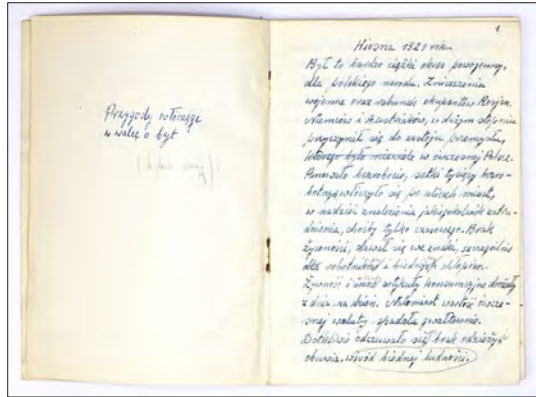 Przygody włóczęgi
w walce o byt
1
Wiosna 1921 roku
Był to bardzo ciężki okres powojenny,
dla polskiego narodu. Zniszczenia
wojenne oraz rabunek okupantów Rosjan
Niemców i Austriaków, w dużym stopniu
przyczynił się do zastoju przemysłu,
którego było niewiele w ówczesnej Polsce.
Panowało bezrobocie, setki tysięcy bezro-
botnych włóczyło się po ulicach miast,
w nadziei znalezienia jakiegokolwiek zatru-
dnienia, choćby tylko czasowego. Brak
żywności, dawał się we znaki, szczególnie
dla robotników i biednych chłopów.
Żywność i inne artykuły konsumcyjne drożały
z dnia na dzień. Natomiast wartość ówcze-
snej waluty spadała gwałtownie.
Dotkliwie odczuwało się brak odzieży,
obuwia, wśród biednej ludności.